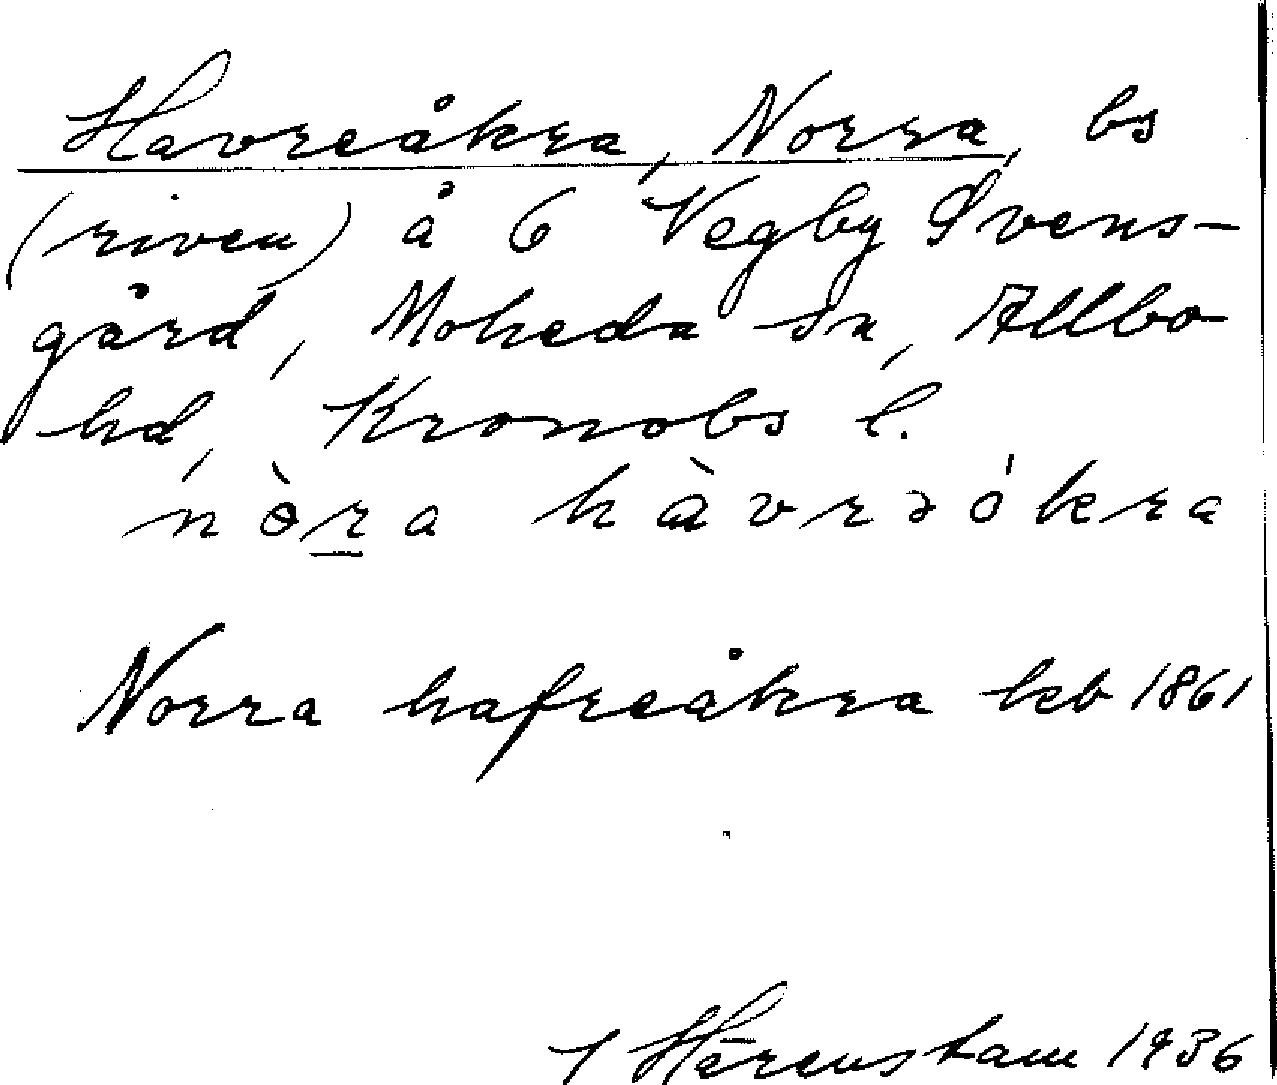 Havreåkra, Norra, bs
(riven) å 6 Vegby Svens-
gård, Moheda sn, Allbo
hd, Kronobs l.
nòra hàvrəókra
Norra hafreåkra kb 1861
Härenstam 1936